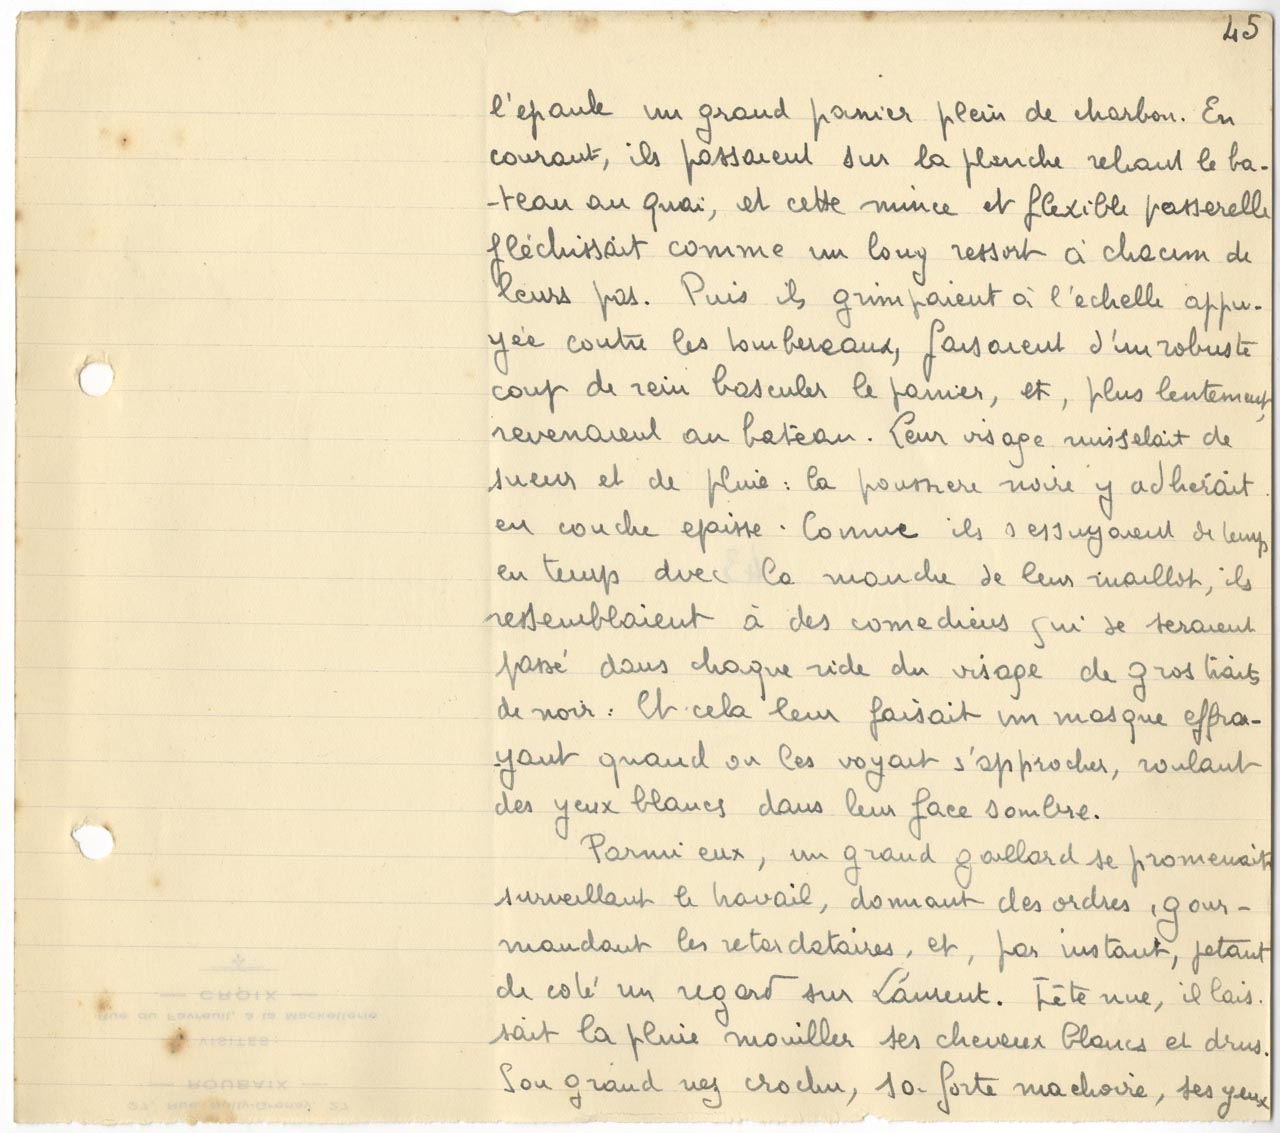 45
l'epaule un grand panier plein de charbon. En
courant, ils passaient sur la planche reliant le ba-
-teau au quai, et cette mince et flexible passerelle
fléchissait comme un long ressort à chacun de
leurs pas. Puis ils grimpaient à l'echelle appu-
yée contre les tombereaux, faisaient d'un robuste
coup de rein basculer le panier, et, plus lentement,
revenaient au bateau. Leur visage ruisselait de
sueur et de pluie : la poussiere noire y adhérait
en couche epaisse. Comme ils s'essuyaient de temps
en temps avec la manche de leur maillot, ils
ressemblaient à des comediens qui se seraient
passé dans chaque ride du visage de gros traits
de noir. Et cela leur faisait un masque effra-
yant quand on les voyait s'approcher, roulant
des yeux blancs dans leur face sombre.
Parmi eux, un grand gaillard se promenait
surveillant le travail, donnant des ordres, gour-
mandant les retardataires, et, par instant, jetant
de coté un regard sur Laurent. Tête nue, il lais.
sait la pluie mouiller ses cheveux blancs et drus.
Son grand nez crochu, sa forte machoire, ses yeux
CROIX
Rue du Favreuil, à la Mackellerie
VISITES:
ROUBAIX